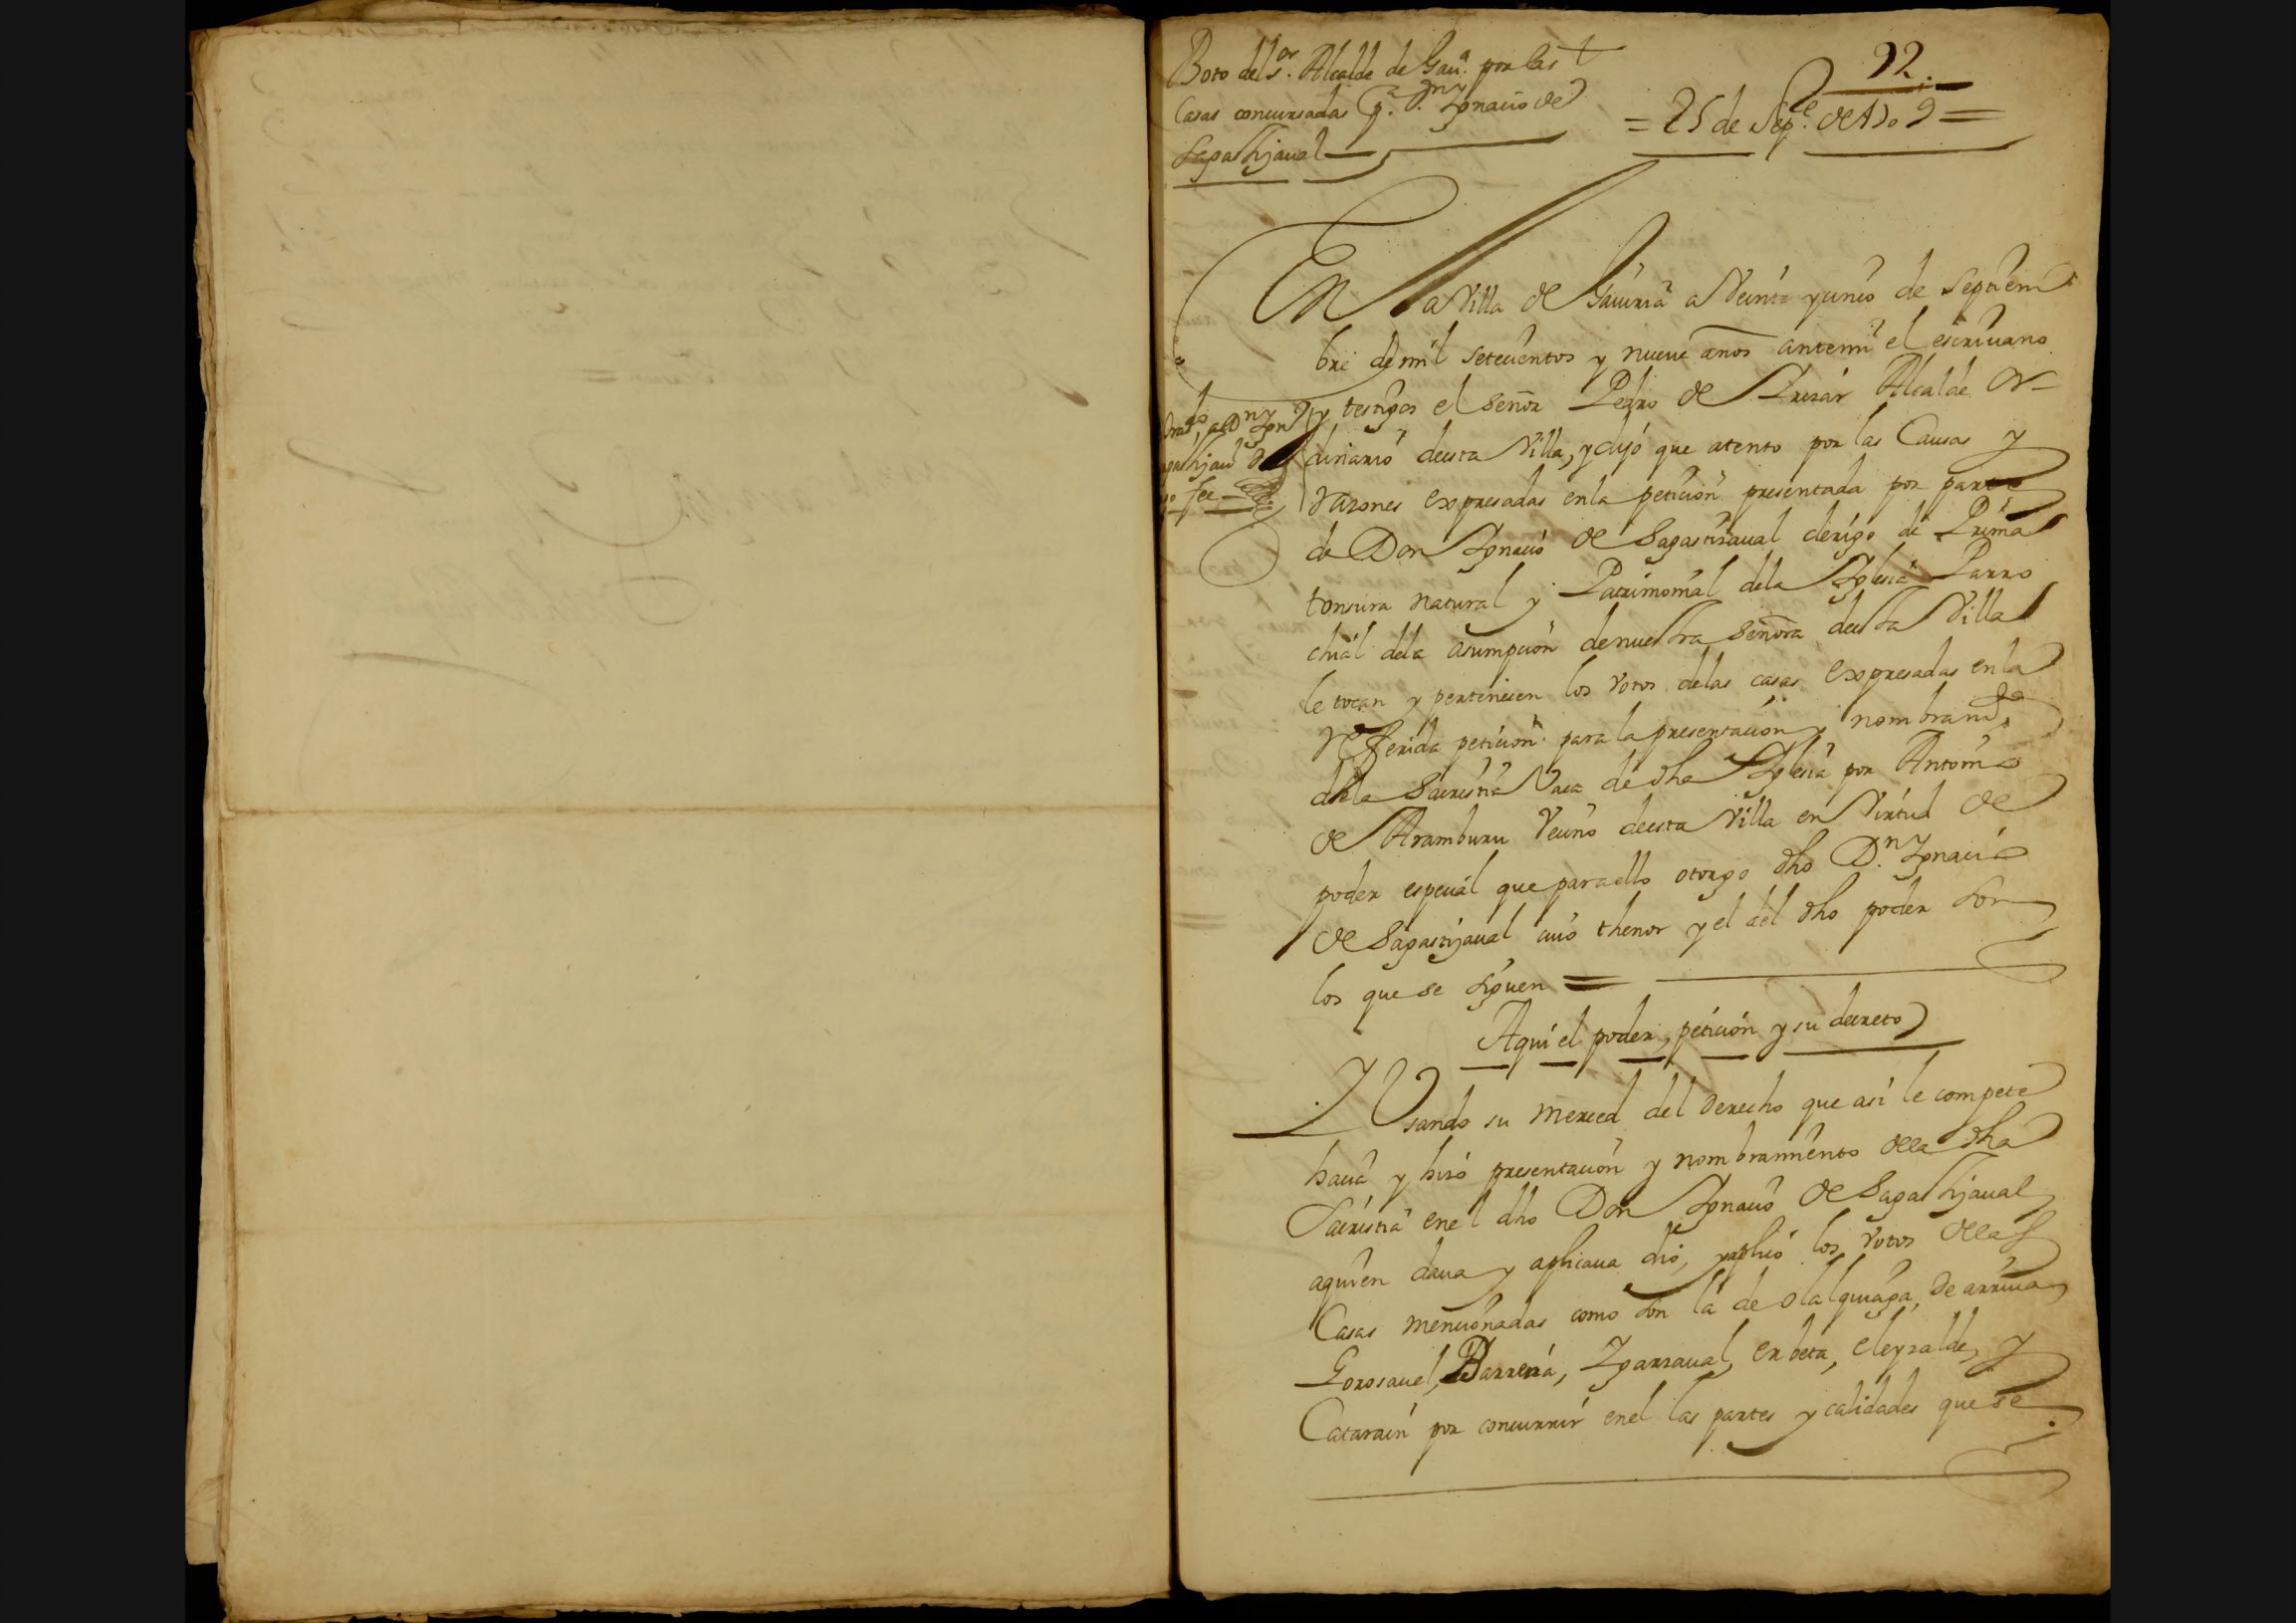 92
Boto del s.or Alcalde de Gau.a por las
Casas concursadas p.a D.n Ygnacio de
Sagastijaual
= 25 de Sep.e de 1709 =
En la Villa de Gauiria a Veinte y cinco de Septiem
bre de mil setecientos y nueve años antemi el escriuano
y testigos el señor Pedro de Yrizar Alcalde Or-
dinario deesta Villa, y dijo que atento por las Causas y
Razones expresadas enla peticion presentada por parte
de Don Ygnacio de Sagastizaual clerigo de Prima
tonsura natural y Patrimonial dela Yglesia Parro
chial dela asumpcion denuestra señora deesta Villa
le tocan y pertenecen los votos delas casas expresadas enla
Referida peticion para la presentacion y nombram.to
dela Sacristia Vaca de dha Yglesia por Antonio
de Aramburu Vecino deesta Villa en Virtud de
poder especial que paraello otorgo dho D.n Ygnacio
de Sagastijaual cuio thenor y el del dho poder son
los que se siguen =
Aqui el poder, peticion y su decreto
Y Vsando su merced del derecho que asi le compete
hacia y hizo presentacion y nombramiento de la dha
Sacristia enel dho Don Ygnacio de Sagastijaual
aquien daua y aplicaua dio, y aplico los votos de las
Casas mencionadas como son la de olalquiaga de arriua
Gorosauel, Barrena, Ygarzaual, erbeta, eleyzalde, y
Catarain por concurrir enel las partes y calidades que se